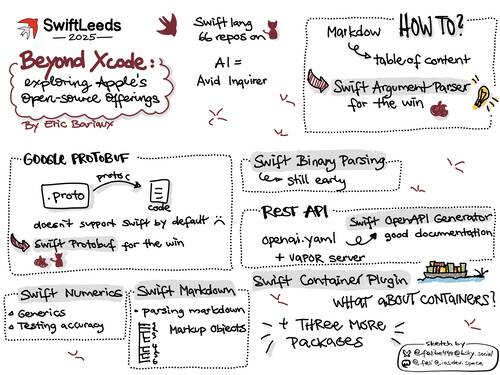 SwiftLeeds
2025
Beyond Xcode:
exploring Apple's
Open-source Offerings
By Eric Bariaux
Swift lang
66 repos on
AI =
Avid Inquirer
HOW TO?
Markdow
table of content
Swift Argument Parser
for the win
GOOGLE PROTOBUF
.proto
protoc
code
doesn't support Swift by default
Swift Protobuf for the win
Swift Binary Parsing
still early
REST API
openai.yaml
+ VAPOR server
Swift OpenAPI Generator
good documentation
Swift Numerics
Generics
Testing accuracy
Swift Markdown
parsing markdown
Markup Objects
Swift Container Plugin
WHAT ABOUT CONTAINERS?
+ THREE MORE
PACKAGES
sketch by